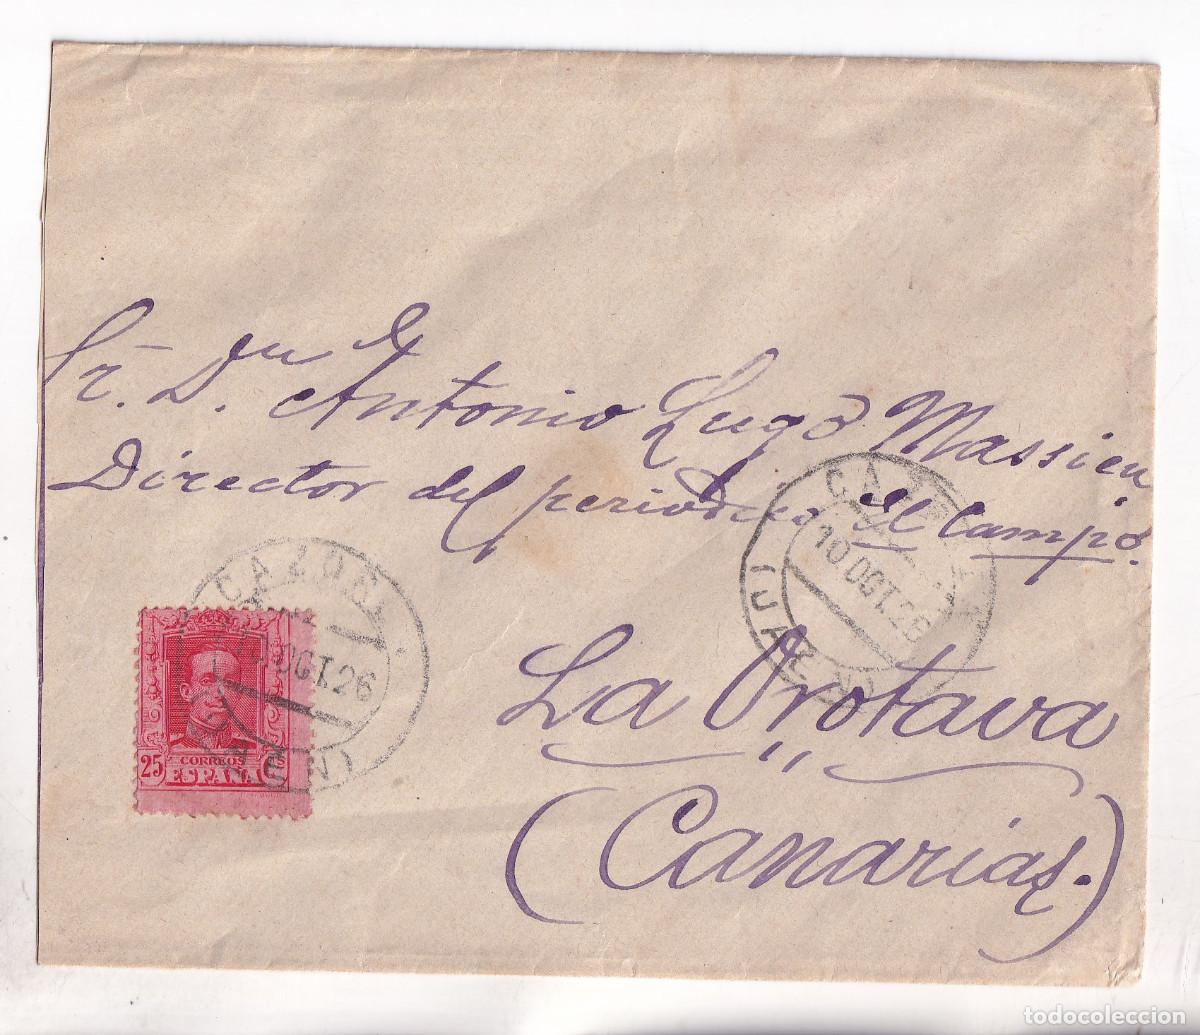 Sr. Dn. D. Antonio Lugo Massieu
Director del periódico El Campo.
La Orotava
(Canarias.)
CAZORLA
10 OCT. 26
(JAEN)
CAZORLA
10 OCT. 26
(JAEN)
25 CORREOS Cs
ESPAÑA
todocoleccion